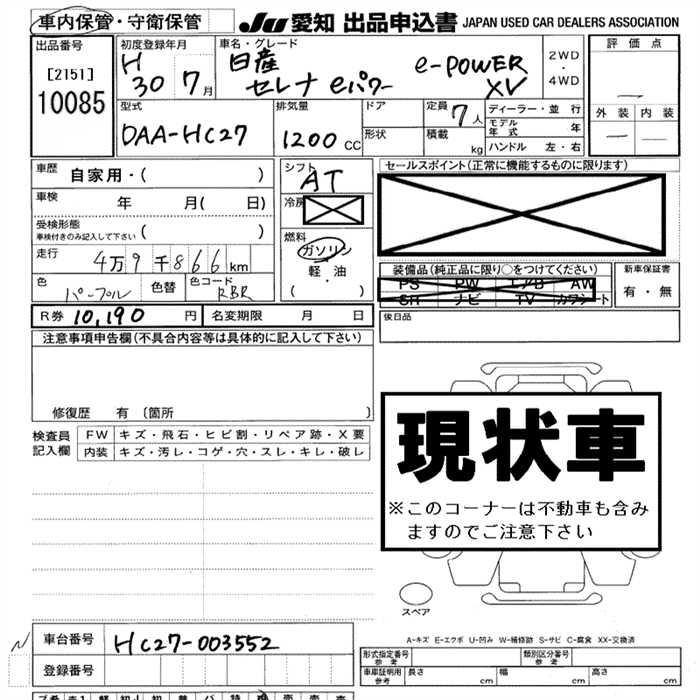 車内保管・守衛保管
JU 愛知 出品申込書 JAPAN USED CAR DEALERS ASSOCIATION
出品番号
[2151]
10085
初度登録年月
H
30 7月
車名・グレード
日産
セレナ eパワー e-POWER
XV
2WD
・
4WD
評価点
—
外装 内装
— —
型式
DAA-HC27
排気量
1200 CC
ドア
形状
定員 7人
積載 kg
ディーラー・並行
モデル年式 年
ハンドル 左・右
車歴 自家用・( )
車検 年 月( 日)
受検形態
車検付きのみ記入して下さい ( )
走行 4万9千866km
色 パープル 色替 色コード RBR
シフト
AT
冷房
燃料
ガソリン
軽・油
( )
セールスポイント(正常に機能するものに限ります)
装備品(純正品に限り○をつけてください)
PS PW エアB AW
SR ナビ TV カワシート
新車保証書
有・無
R券 10,190 円 名変期限 月 日
後日品
注意事項申告欄(不具合内容等は具体的に記入して下さい)
修復歴 有 〔箇所 〕
検査員
記入欄
FW キズ・飛石・ヒビ割・リペア跡・X要
内装 キズ・汚レ・コゲ・穴・スレ・キレ・破レ
現状車
※このコーナーは不動車も含み
ますのでご注意下さい
スペア
A-キズ E-エクボ U-凹み W-補修跡 S-サビ C-腐食 XX-交換済
N
車台番号 HC27-003552
登録番号
形式指定番号
参考
類別区分番号
参考
車庫証明用
参考
長さ cm 幅 cm 高さ cm